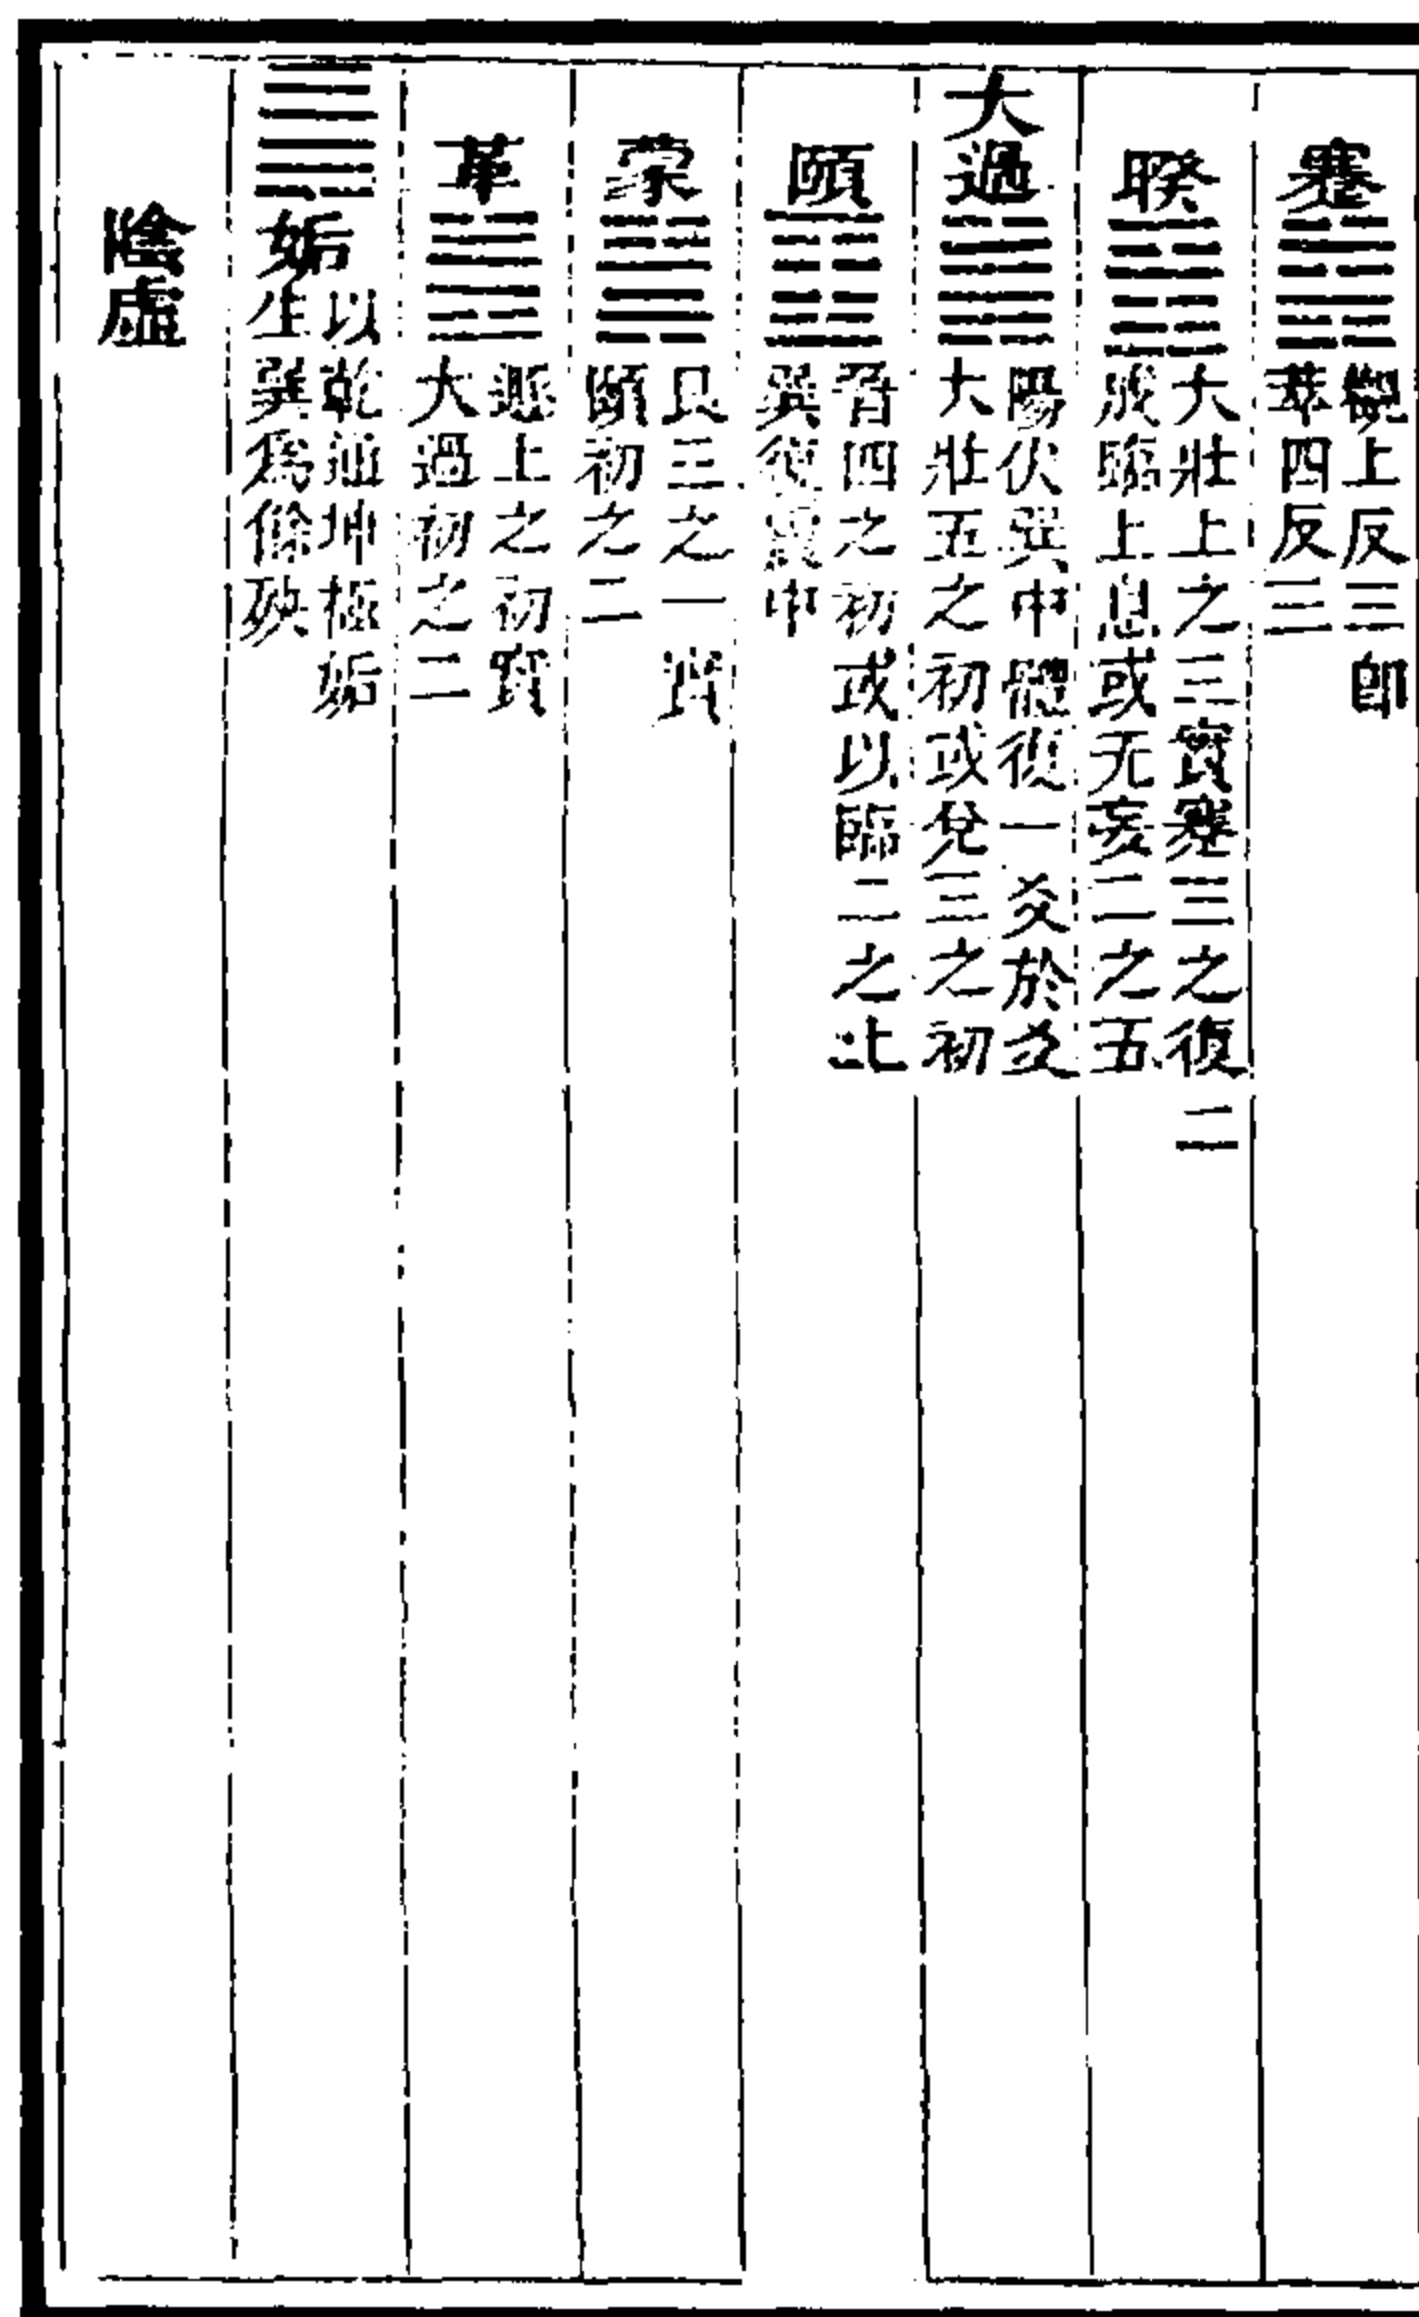 蹇䷦觀上反三即
萃四反三
睽䷥大壯上之三實蹇三之復二
成臨上息或无妄二之五
大過䷛陽伏巽中體復一爻於爻
大壯五之初或兌三之初
頤䷚晉四之初或以臨二之上
巽復震中
蒙䷃艮三之二實
頤初之二
革䷰遯上之初實
大過初之二
䷫姤以乾通坤極姤
生巽為餘殃
陰虛